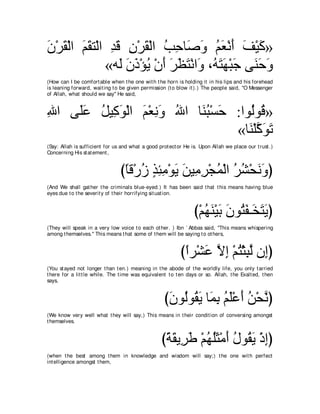 «كَيْفَ أَنْعَمُ وَصَاحِبُ الْقَرْنِ قَدِ الْتَقَمَ الْقَرْنَ
وَحَنَى جَبْهَتَهُ، وَانْتَظَرَ أَنْ يُؤْذَنَ لَه»
(How can I be comfortable when the one with the horn is holding it in his lips and his forehead
is leaning forward, waiting to be given permission (to blow it).) The people said, "O Messenger
of Allah, what should we say" He said,
«قُولُوا: حَسْبُنَا اللهُ وَنِعْمَ الْوَكِيلُ عَلَى اللهِ
تَوَكَّلْنَا»
(Say: Allah is sufficient for us and what a good protector He is. Upon Allah we place our trust.)
Concerning His statement,
(وَنَحْشُرُ الْمُجْرِمِينَ يَوْمَئِذٍ زُرْقاً)
(And We shall gather the criminals blue-eyed.) It has been said that this means having blue
eyes due to the severity of their horrifying situation.
(يَتَخَـفَتُونَ بَيْنَهُمْ)
(They will speak in a very low voice to each other.) Ibn `Abbas said, "This means whispering
among themselves." This means that some of them will be saying to others,
(إِن لَّبِثْتُمْ إِلاَّ عَشْراً)
(You stayed not longer than ten.) meaning in the abode of the worldly life, you only tarried
there for a little while. The time was equivalent to ten days or so. Allah, the Exalted, then
says,
(نَّحْنُ أَعْلَمُ بِمَا يَقُولُونَ)
(We know very well what they will say,) This means in their condition of conversing amongst
themselves.
(إِذْ يَقُولُ أَمْثَلُهُمْ طَرِيقَةً)
(when the best among them in knowledge and wisdom will say;) the one with perfect
intelligence amongst them,